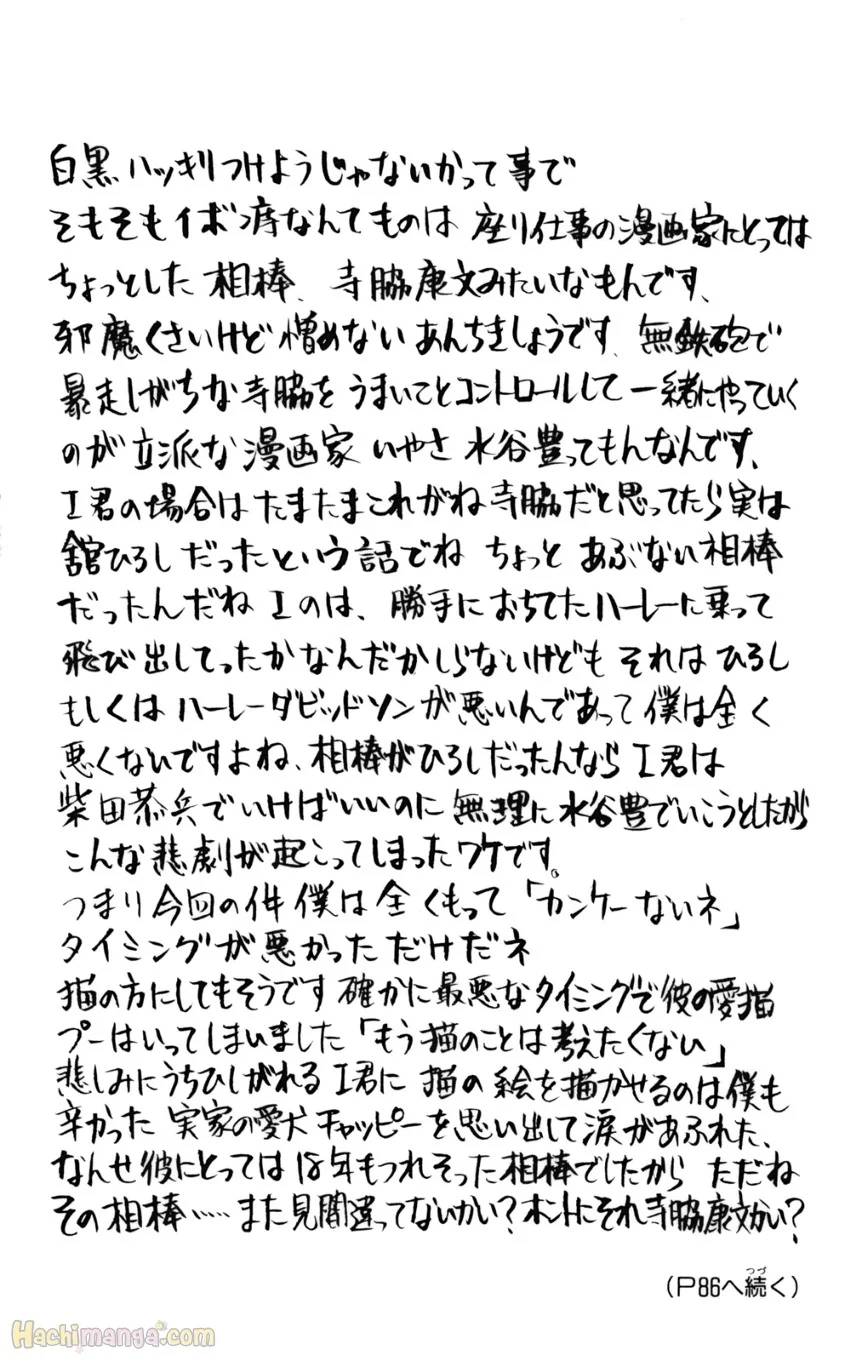 白黒ハッキリつけようじゃないかって事で
そもそもイボ痔なんてものは 座り仕事の漫画家にとっては
ちょっとした相棒、寺脇康文みたいなもんです、
邪魔くさいけど憎めないあんちきしょうです、無鉄砲で
暴走しがちな寺脇をうまいことコントロールして一緒にやっていく
のが立派な漫画家 いやさ 水谷豊ってもんなんです、
I君の場合はたまたまこれがね寺脇だと思ってたら実は
舘ひろしだったという話でね ちょっと あぶない相棒
だったんだね Iのは、勝手におちてたハーレーに乗って
飛び出してったかなんだかしらないけども それは ひろし
もしくは ハーレーダビッドソンが悪いんであって 僕は全く
悪くないですよね、相棒がひろしだったんなら I君は
柴田恭兵でいけばいいのに 無理に水谷豊でいこうとしたから
こんな悲劇が起こってしまったワケです。
つまり今回の件 僕は全くもって「カンケーないネ」
タイミングが悪かっただけだネ
猫の方にしてもそうです 確かに最悪なタイミングで彼の愛猫
プーはいってしまいました「もう猫のことは考えたくない」
悲しみにうちひしがれる I君に 猫の絵を描かせるのは僕も
辛かった 実家の愛犬チャッピーを思い出して涙があふれた、
なんせ彼にとっては 18年もつれそった相棒でしたから ただね
その相棒……また見間違ってないかい?ホントにそれ寺脇康文かい?
(P86へ続く)
つづ
Hachimanga.com